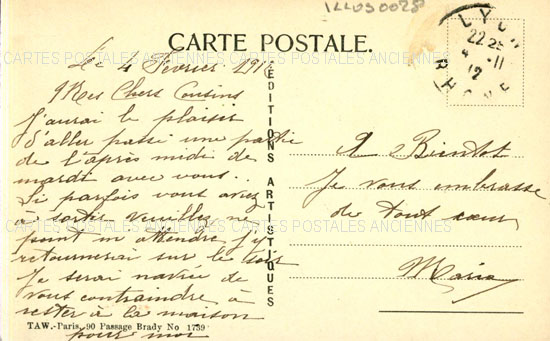 ILLUS0028
CARTE POSTALE.
LYON
22 25
4 - 11
12
RHONE
CARTES POSTALES ANCIENNES CARTES POSTALES ANCIENNES
Le 4 Février 191
Mes Chers Cousins
J'aurai le plaisir
d'aller passé une partie
de l'après midi de
mardi avec vous..
Si parfois vous aviez
à sortir veuillez ne
point m'attendre j'y
retournerai sur le soir
Je serai navrée de
vous contraindre à
rester à la maison
pour moi
ÉDITIONS ARTISTIQUES
A Bientot
Je vous embrasse
de tout cœur
Maria
CARTES POSTALES ANCIENNES CARTES POSTALES ANCIENNES
TAW.-Paris, 90 Passage Brady No 1739